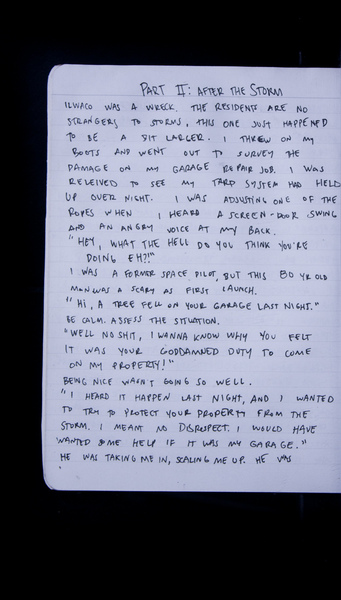 PART II: AFTER THE STORM
ILWACO WAS A WRECK. THE RESIDENTS ARE NO
STRANGERS TO STORMS, THIS ONE JUST HAPPENED
TO BE A BIT LARGER. I THREW ON MY
BOOTS AND WENT OUT TO SURVEY THE
DAMAGE ON MY GARAGE REPAIR JOB. I WAS
RELEIVED TO SEE MY TARP SYSTEM HAD HELD
UP OVER NIGHT. I WAS ADJUSTING ONE OF THE
ROPES WHEN I HEARD A SCREEN-DOOR SWING
AND AN ANGRY VOICE AT MY BACK.
"HEY, WHAT THE HELL DO YOU THINK YOU'RE
DOING EH?!"
I WAS A FORMER SPACE PILOT, BUT THIS 80 YR OLD
MAN WAS A SCARY AS FIRST LAUNCH.
"HI, A TREE FELL ON YOUR GARAGE LAST NIGHT."
BE CALM. ASSESS THE SITUATION.
"WELL NO SHIT, I WANNA KNOW WHY YOU FELT
IT WAS YOUR GODDAMNED DUTY TO COME
ON MY PROPERTY!"
BEING NICE WASN'T GOING SO WELL.
"I HEARD IT HAPPEN LAST NIGHT, AND I WANTED
TO TRY TO PROTECT YOUR PROPERTY FROM THE
STORM. I MEANT NO DISRESPECT. I WOULD HAVE
WANTED SOME HELP IF IT WAS MY GARAGE."
HE WAS TAKING ME IN, SCALING ME UP. HE WAS